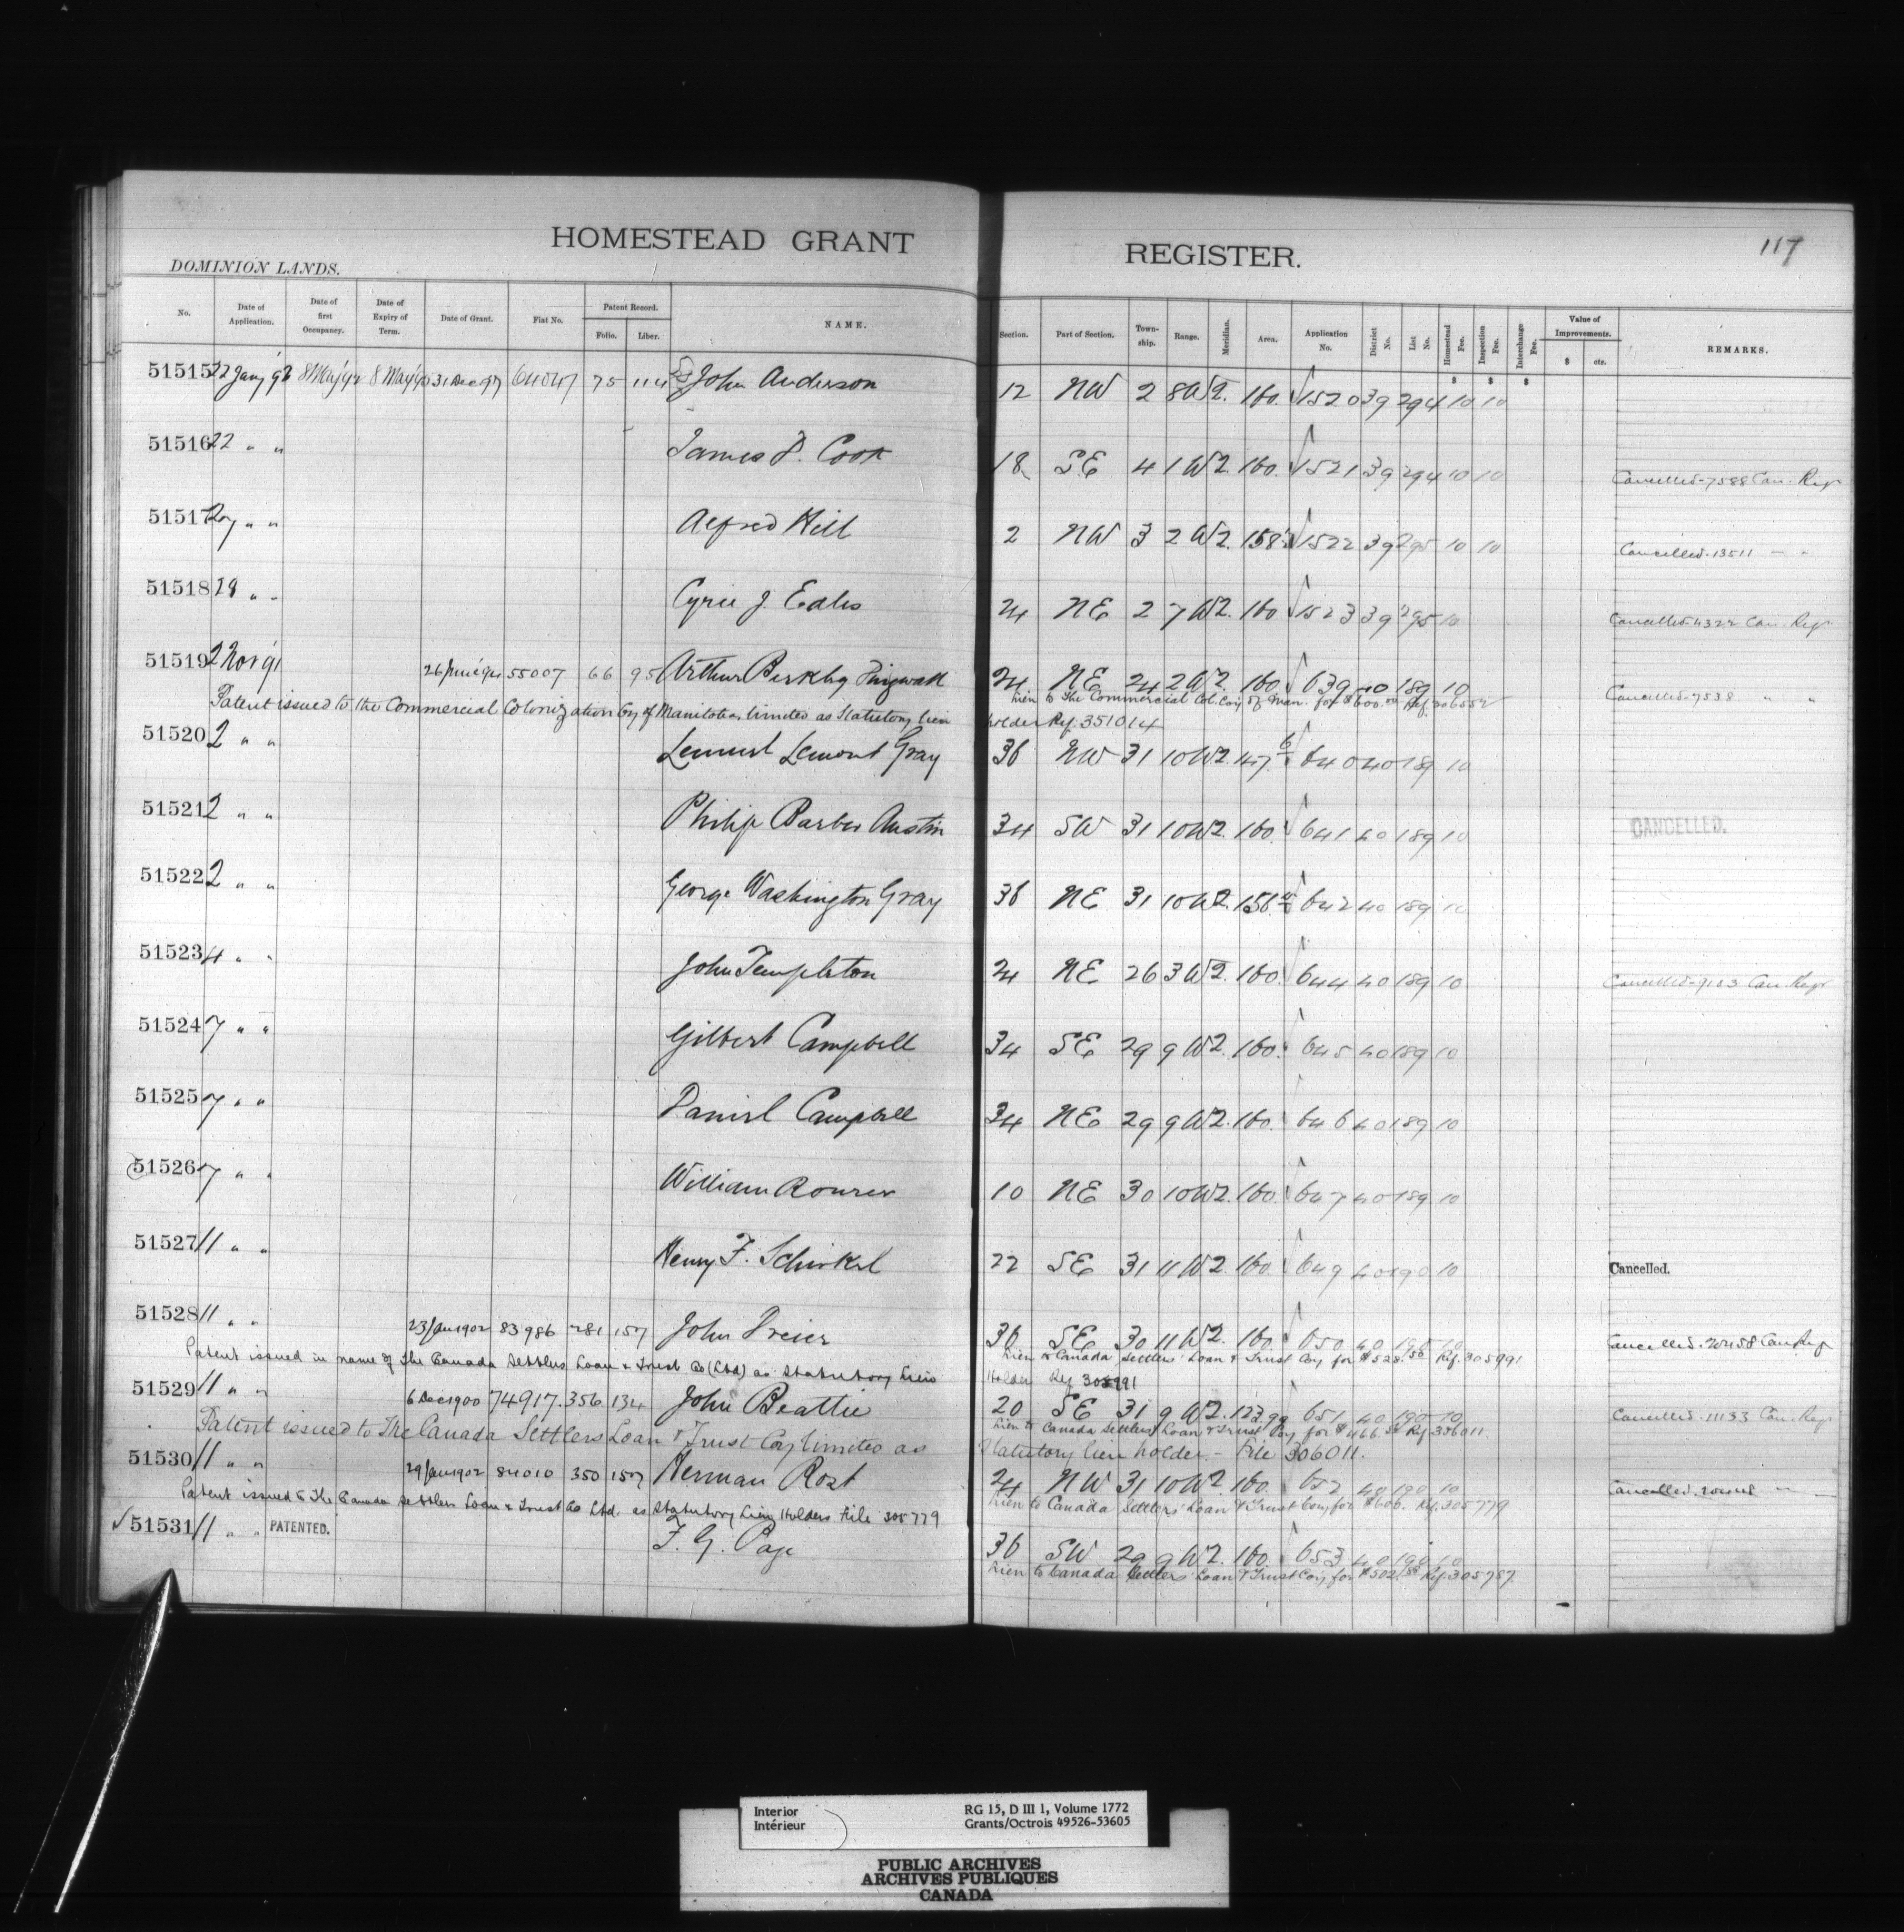 HOMESTEAD GRANT REGISTER. 117
DOMINION LANDS.
No. Date of Application. Date of first Occupancy. Date of Expiry of Term. Date of Grant. Fiat No. Patent Record. Folio. Liber. NAME. Section. Part of Section. Township. Range. Meridian. Area. Application No. District No. List No. Homestead Fee. Inspection Fee. Interchange Fee. Value of Improvements. $ cts. REMARKS.
$ $ $
51515 22 Jany 92 8 May 92 8 May 31 Dec 97 75 114 John Anderson 12 NW 2 8 W2. 160. 1520 39 294 10 10
51516 22 " " James P. Cook 18 SE 4 1 W2. 160. 1521 39 294 10 10 Cancelled-7588 Can. Regr
51517 27 " " Alfred Hill 2 NW 3 2 W2. 158 1522 39 295 10 10 Cancelled-13511 — "
51518 29 " " J. Eales 24 NE 2 7 W2. 160 1523 39 295 10 Cancelled-4322 Can. Regr
51519 2 Nov 91 26 June 94 55007 66 95 Arthur Berkby 24 NE 24 2 W2. 160. 639 40 189 10 Cancelled-7538 " "
Patent issued to the Commercial Colonization Coy of Manitoba limited as Statutory lien
Lien to The Commercial Col. Coy of Man. for $600.00 Ref. 306552
holder Ref. 351014
51520 2 " " Lemuel Lemont Gray 36 NW 31 10 W2 147. 640 40 189 10
51521 2 " " Philip Barber Austin 34 SW 31 10 W2. 160. 641 40 189 10 CANCELLED.
51522 2 " " George Washington Gray 36 NE 31 10 W2. 156 642 40 189 10
51523 4 " " John Templeton 24 NE 26 3 W2. 160. 644 40 189 10 Cancelled-9153 Can. Regr
51524 7 " " Gilbert Campbell 34 SE 29 9 W2. 160. 645 40 189 10
51525 7 " " Daniel Campbell 34 NE 29 9 W2. 160. 646 40 189 10
51526 7 " " William Rourer 10 NE 30 10 W2. 160. 647 40 189 10
51527 11 " " Henry F. Schinkel 22 SE 31 11 W2. 160. 649 40 190 10 Cancelled.
51528 11 " " 23 Jan 1902 83986 281 157 John Dreier 36 SE 30 11 W2. 160. 650 40 190 10 Cancelled. Can Regr
Patent issued in name of The Canada Settlers Loan & Trust Co (Ltd) as Statutory Lien
Lien to Canada Settlers' Loan & Trust Coy for $528.50 Ref. 305991
Holder Ref 305991
51529 11 " " 6 Dec 1900 74917. 356 134 John Beattie 20 SE 31 9 W2. 123.99 651 40 190 10 Cancelled-11133 Can. Regr
Lien to Canada Settlers' Loan & Trust Coy for $466. Ref. 306011.
Patent issued to The Canada Settlers Loan & Trust Coy limited as Statutory lien holder — File 306011.
51530 11 " " 29 Jan 1902 84010 350 157 Herman Rost 24 NW 31 10 W2. 160. 652 40 190 10 Cancelled.
Patent issued to The Canada Settlers Loan & Trust Co Ltd. as Statutory Lien Holders File 305779
Lien to Canada Settlers' Loan & Trust Coy for $606. Ref. 305779
51531 11 " " PATENTED. F. G. Page 36 SW 29 9 W2. 160. 653 40 190 10
Lien to Canada Settlers' Loan & Trust Coy for $502. Ref. 305787.
Interior
Intérieur
RG 15, D III 1, Volume 1772
Grants/Octrois 49526-53605
PUBLIC ARCHIVES
ARCHIVES PUBLIQUES
CANADA